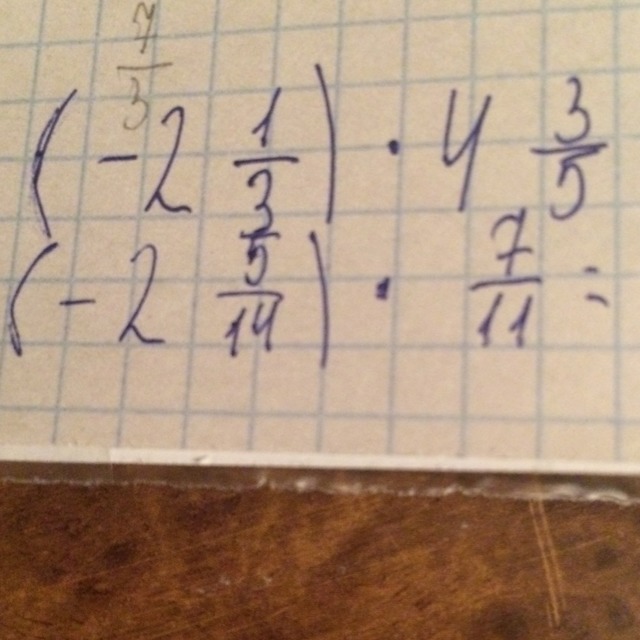 7/3
(-2 1/3) · 4 3/5
(-2 5/14) · 7/11 =